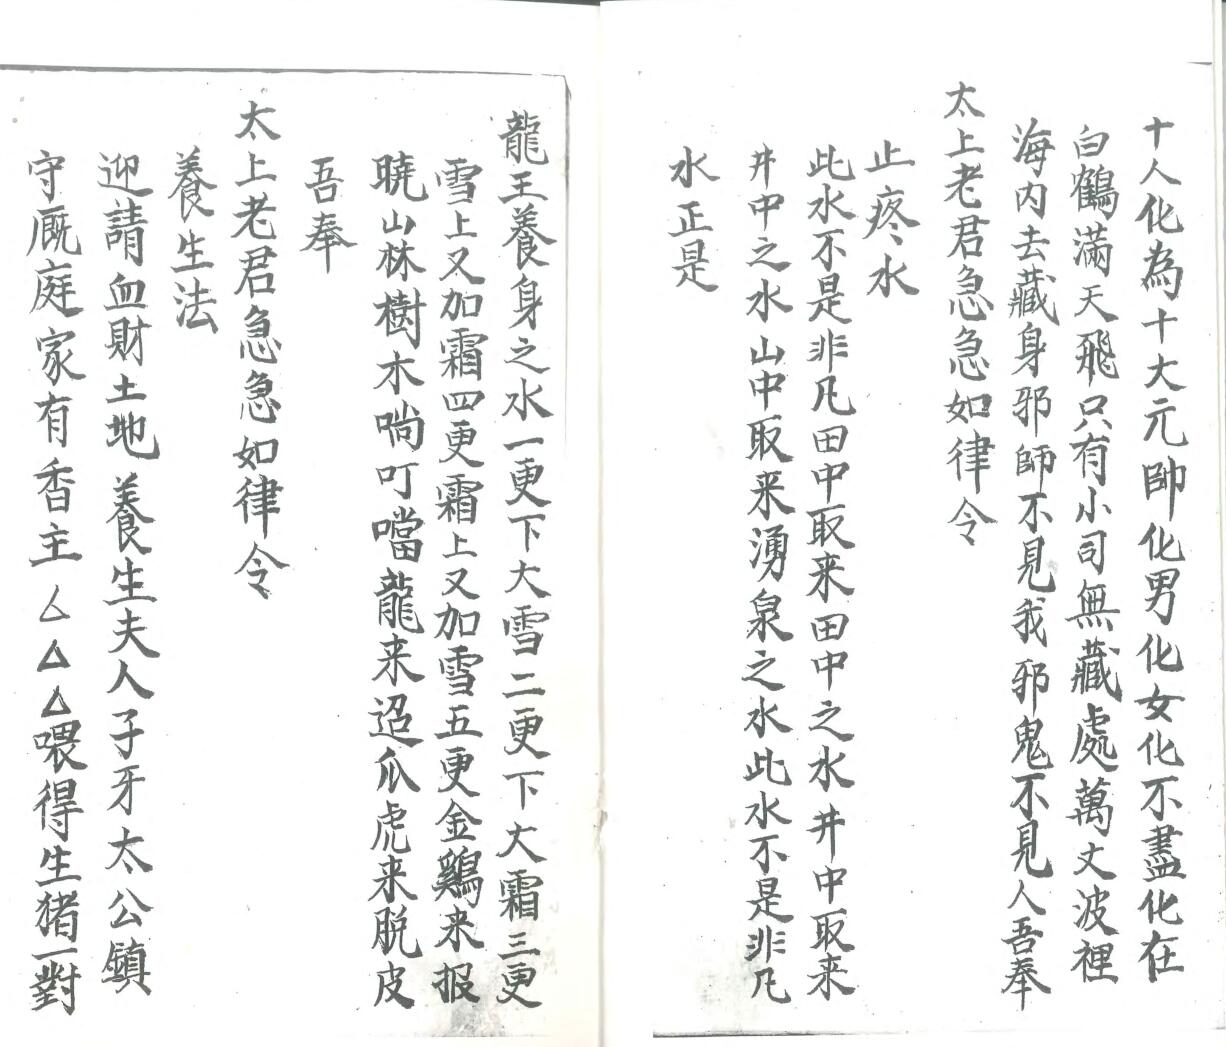 十人化為十大元帥化男化女化不盡化在
白鶴滿天飛只有小司無藏處萬丈波裡
海内去藏身邪師不見我邪鬼不見人吾奉
太上老君急急如律令
止疼水
此水不是非凡田中取来田中之水井中取来
井中之水山中取来湧泉之水此水不是非凡
水正是
龍王養身之水一更下大雪二更下大霜三更
雪上又加霜四更霜上又加雪五更金鷄来报
曉山林樹木喃叮噹龍来迢爪虎来脱皮
吾奉
太上老君急急如律令
養生法
迎請血財土地養生夫人子牙太公鎮
守厩庭家有香主△△△喂得生猪一對